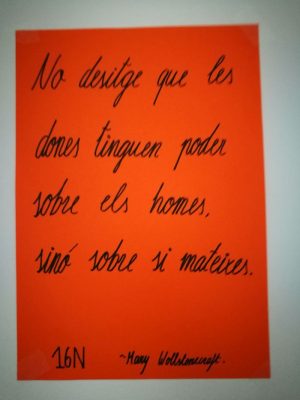 No desitge que les
dones tinguen poder
sobre els homes,
sinó sobre si mateixes.
16N ~Mary Wollstonecraft.